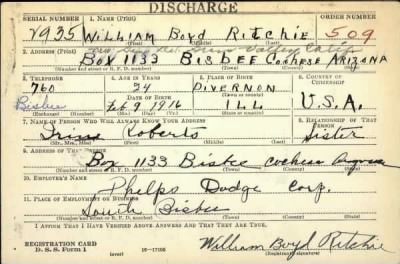 DISCHARGE
SERIAL NUMBER 1. NAME (Print) ORDER NUMBER
V935 WILLIAM BOYD RITCHIE 509
(First) (Middle) (Last)
2. ADDRESS (Print)
BOX 1133 BISBEE COCHESE ARIZONA
(Number and street or R. F. D. number) (Town) (County) (State)
3. TELEPHONE 4. AGE IN YEARS 5. PLACE OF BIRTH 6. COUNTRY OF CITIZENSHIP
760 24 DIVERNON
DATE OF BIRTH (Town or county)
Bisbee Feb 9 1916 ILL U.S.A.
(Exchange) (Number) (Mo.) (Day) (Yr.) (State or country)
7. NAME OF PERSON WHO WILL ALWAYS KNOW YOUR ADDRESS 8. RELATIONSHIP OF THAT PERSON
Roberts Sister
(Mr., Mrs., Miss) (First) (Middle) (Last)
9. ADDRESS OF THAT PERSON
Box 1133 Bisbee Cochese
(Number and street or R. F. D. number) (Town) (County) (State)
10. EMPLOYER'S NAME
Phelps Dodge Corp.
11. PLACE OF EMPLOYMENT OR BUSINESS
South Bisbee
(Number and street or R. F. D. number) (Town) (County) (State)
I AFFIRM THAT I HAVE VERIFIED ABOVE ANSWERS AND THAT THEY ARE TRUE.
REGISTRATION CARD William Boyd Ritchie
D. S. S. Form 1 (over) (Registrant's signature)